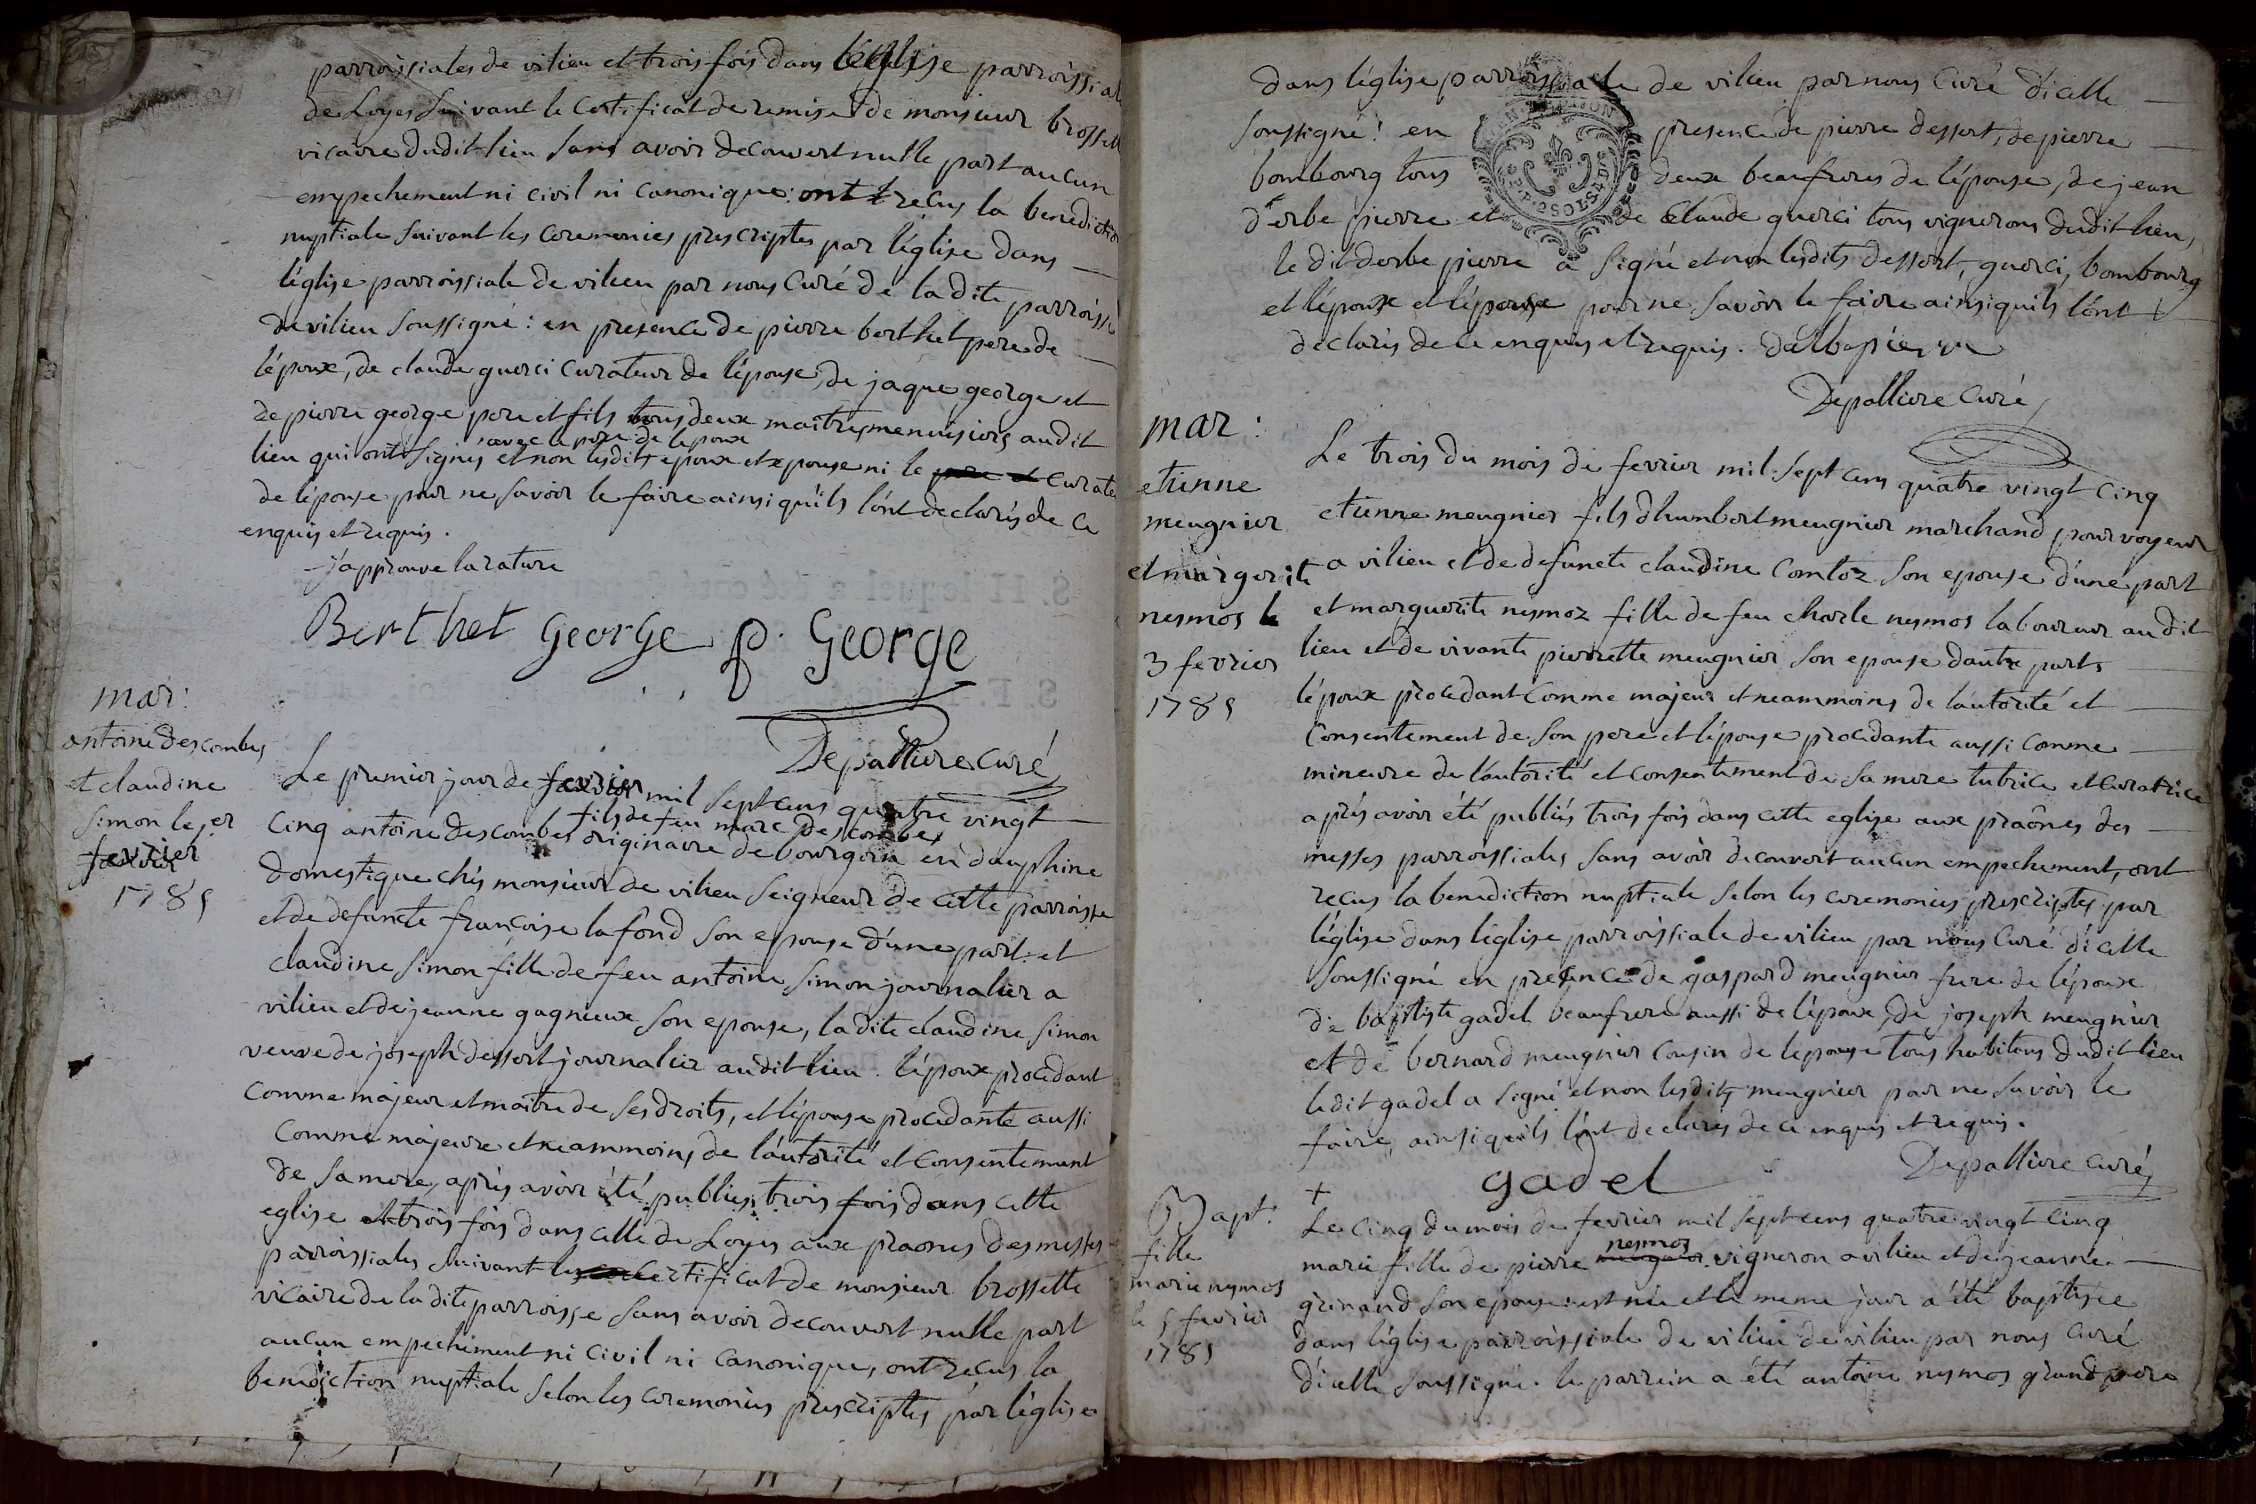 parroissiales de vilieu et trois fois dans l'église parroissiale
de Loyes suivant le certificat de remise de monsieur brossette
vicaire dudit lieu sans avoir decouvert nulle part aucun
empechement ni civil ni canonique: ont recus la benediction
nuptiale suivant les ceremonies prescriptes par l'église dans
l'église parroissiale de vilieu par nous curé de la dite parroisse
de vilieu soussigné: en presence de pierre berthet pere de
l'époux, de claude guerci curateur de l'épouse, de jaque george et
de pierre george pere et fils tous deux maitres menuisiers audit
avec le pere de lepoux
lieu qui ont signés et non lesdits epoux et epouse ni le pere et curateur
de l'épouse pour ne savoir le faire ainsi qu'ils l'ont declarés de ce
enquis et requis.
j'approuve la rature
Berthet george p. George
Depalliere curé
mar:
antoine descombes
et claudine
simon le 1er
fevrier
1785
Le premier jour de fevrier mil sept cens quatre vingt
fils de feu marc descombes
cinq antoine descombes originaire de bourgoin en dauphine
domestique chés monsieur de vilieu seigneur de cette parroisse
et de defuncte francoise lafond son epouse d'une part et
claudine simon fille de feu antoine simon journalier a
vilieu et de jeanne gagnieux son epouse, la dite claudine simon
veuve de joseph dessert journalier audit lieu. l'époux procedant
comme majeur et maitre de ses droits, et l'épouse procedante aussi
comme majeure et neammoins de l'autorité et consentement
de sa mere, après avoir été publiés trois fois dans cette
eglise et trois fois dans celle de Loyes aux praones des messes
parroissiales suivant le certificat de monsieur brossette
vicaire de la dite parroisse sans avoir decouvert nulle part
aucun empechement ni civil ni canonique, ont recus la
benediction nuptiale selon les ceremonies prescriptes par l'église
dans l'église parroissiale de vilieu par nous curé d'icelle
soussigné: en presence de pierre dessert, de pierre
bombourg tous deux beaufreres de l'épouse, de jean
d'erbe pierre et de claude guerci tous vignerons dudit lieu,
le dit derbe pierre a signé et non lesdits dessert, guerci, bombourg
et l'époux et l'épouse pour ne savoir le faire ainsi quils l'ont
declarés de ce enquis et requis. dalbapierre
Depalliere curé
mar:
etienne
meugnier
et margerite
nesmos le
3 fevrier
1785
Le trois du mois de fevrier mil sept cens quatre vingt cinq
etienne meugnier fils d'humbert meugnier marchand pourvoyeur
a vilieu et de defuncte claudine comtoz son epouse d'une part
et marguerite nesmoz fille de feu charle nesmos laboureur audit
lieu et de vivante pierrette meugnier son epouse dautre parts
l'époux procedant comme majeur et neammoins de l'autorité et
consentement de son pere et l'épouse procedante aussi comme
mineure de l'autorité et consentement de sa mere tutrice et curatrice
après avoir été publiés trois fois dans cette eglise aux praônes des
messes parroissiales sans avoir decouvert aucun empechement, ont
recus la benediction nuptiale selon les ceremonies prescriptes par
l'église dans l'église parroissiale de vilieu par nous curé d'icelle
soussigné en presence de gaspard meugnier frere de l'époux
de baptiste gadel beaufrere aussi de l'époux, de joseph meugnier
et de bernard meugnier cousin de lepouse tous habitans dudit lieu
ledit gadel a signé et non lesdits meugnier par ne savoir le
faire, ainsi quils l'ont declarés de ce enquis et requis.
gadel
Depalliere curé
Bapt.
fille
marie nesmos
le 5 fevrier
1785
+
Le cinq du mois de fevrier mil sept cens quatre vingt cinq
nesmoz
marie fille de pierre meugnier vigneron a vilieu et de jeanne
grinand son epouse: est née et le meme jour a été baptisée
dans l'église parroissiale de vilieu de vilieu par nous curé
d'icelle soussigné. le parrein a été antoine nesmos grand pere